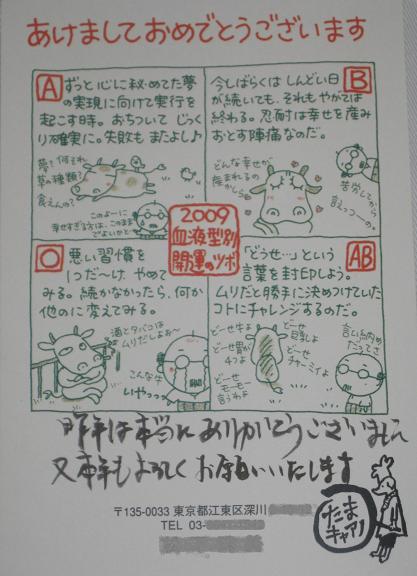 あけましておめでとうございます
A
ずっと心に秘めてた夢
の実現に向けて実行を
起こす時。おちついて じっく
り確実に。失敗も またよし♪
夢?何それ
草の種類?
食えんの?
このよーに
幸せすぎる方は、このまま
でよいかと…
B
今しばらくは しんどい日
が続いても、それもやがては
終わる。忍耐は幸せを産み
おとす陣痛なのだ。
どんな幸せが
産まれるの
かしら
苦労してから
言えっつーの
2009
血液型別
開運のツボ
O
悪い習慣を
1つだ〜け、やめて
みる。続かなかったら、何か
他のに変えてみる。
酒とタバコは
ムリだしょお〜
こんな牛
いやっっ
AB
「どうせ…」という
言葉を封印しよう。
ムリだと勝手に決めつけていた
コトにチャレンジするのだ。
どーせ牛よ
どーせ胃
4つよ
どーせ
モーモー
言うわよ
どーせ
乳よ
どーせ
チャーミィよ
言い納め
だってさ
昨年は本当にありがとうございました
又本年もよろしくお願いいたします
たま
キャアリ
〒135-0033 東京都江東区深川
TEL 03-